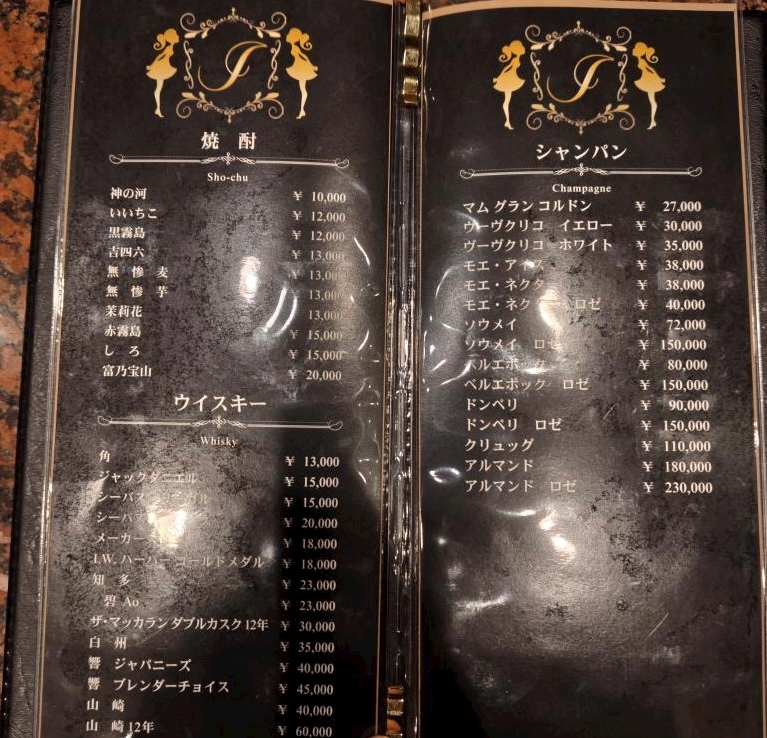 J
焼 酎
Sho-chu
神の河 ¥ 10,000
いいちこ ¥ 12,000
黒霧島 ¥ 12,000
吉四六 ¥ 13,000
無 惨 麦 ¥ 13,000
無 惨 芋 13,000
茉莉花 13,000
赤霧島 ¥ 15,000
し ろ ¥ 15,000
富乃宝山 ¥ 20,000
ウイスキー
Whisky
角 ¥ 13,000
ジャックダニエル ¥ 15,000
シーバス ¥ 15,000
シーバ ¥ 20,000
メーカー ¥ 18,000
I.W. ハーパー ゴールドメダル ¥ 18,000
知 多 ¥ 23,000
碧 Ao ¥ 23,000
ザ・マッカラン ダブルカスク 12年 ¥ 30,000
白 州 ¥ 35,000
響 ジャパニーズ ¥ 40,000
響 ブレンダーチョイス ¥ 45,000
山 崎 ¥ 40,000
山 崎 12年 ¥ 60,000
J
シャンパン
Champagne
マム グラン コルドン ¥ 27,000
ヴーヴクリコ イエロー ¥ 30,000
ヴーヴクリコ ホワイト ¥ 35,000
モエ・アイス ¥ 38,000
モエ・ネクタ ¥ 38,000
モエ・ネク ロゼ ¥ 40,000
ソウメイ ¥ 72,000
ソウメイ ロゼ ¥ 150,000
ベルエポック ¥ 80,000
ベルエポック ロゼ ¥ 150,000
ドンペリ ¥ 90,000
ドンペリ ロゼ ¥ 150,000
クリュッグ ¥ 110,000
アルマンド ¥ 180,000
アルマンド ロゼ ¥ 230,000